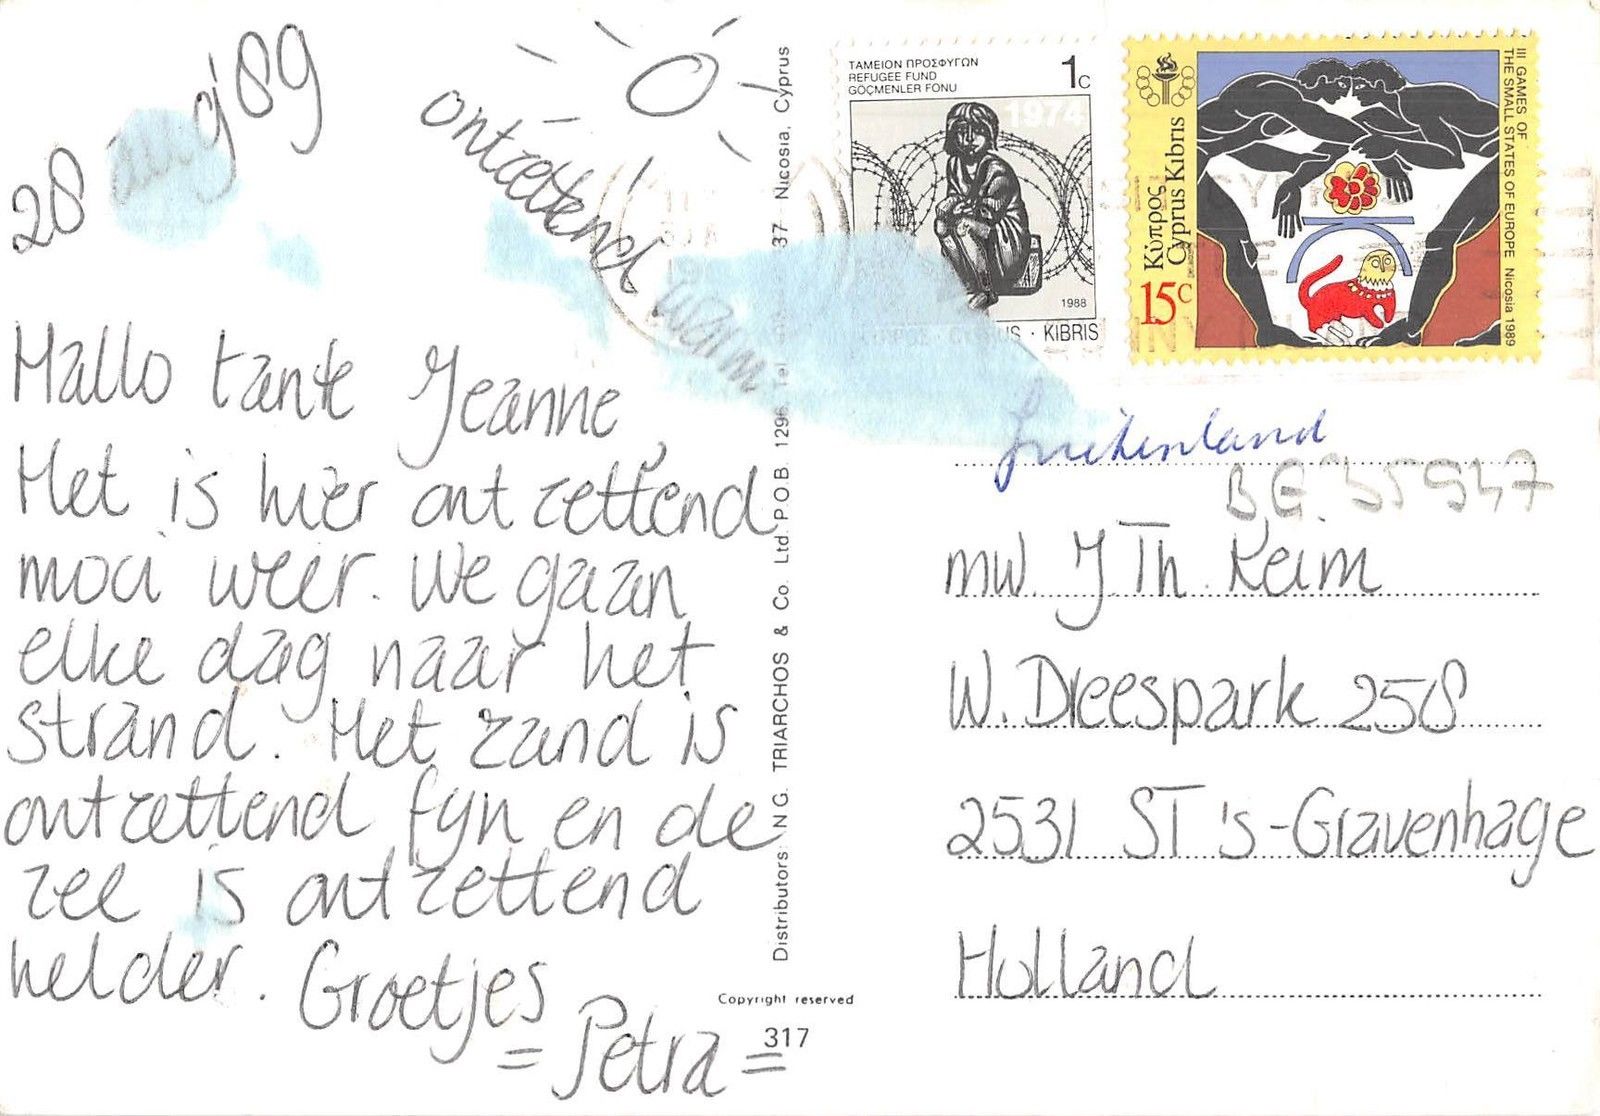 28 aug '89
ontzettend warm
Hallo tante Jeanne,
Het is hier ontzettend
mooi weer. We gaan
elke dag naar het
strand. Het zand is
ontzettend fyn en de
zee is ontzettend
helder. Groetjes
= Petra =
Distributors: N.G. TRIARCHOS & Co. Ltd. P.O.B. 1296, Nicosia, Cyprus
Copyright reserved
317
ΤΑΜΕΙΟΝ ΠΡΟΣΦΥΓΩΝ
REFUGEE FUND
GÖÇMENLER FONU
1c
1974
1988
CYPRUS · KIBRIS
III GAMES OF
THE SMALL STATES OF EUROPE Nicosia 1989
Κύπρος
Cyprus Kıbrıs
15c
Griekenland
mw. J Th. Keim
W. Dreespark 258
2531 ST 's-Gravenhage
Holland